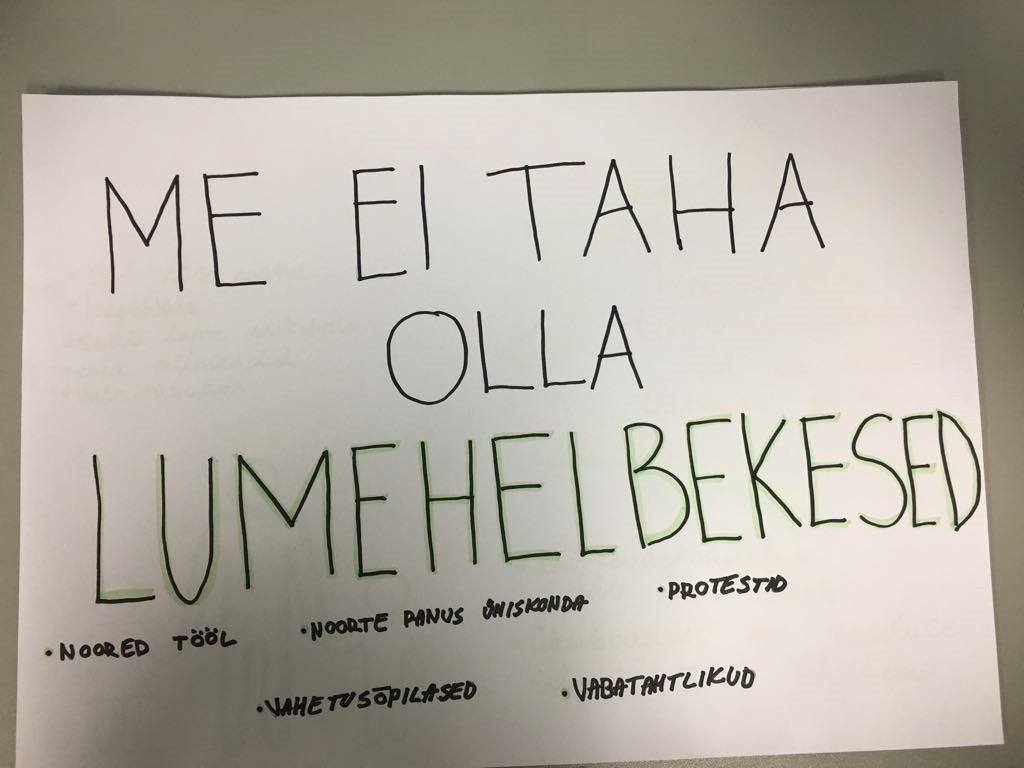 ME EI TAHA
OLLA
LUMEHELBEKESED
• NOORED TÖÖL
• NOORTE PANUS ÜHISKONDA
• PROTESTID
• VAHETUSÕPILASED
• VABATAHTLIKUD